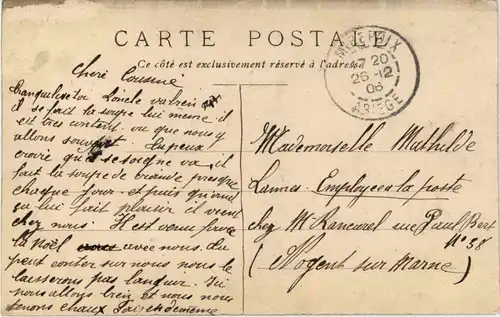 CARTE POSTALE
Ce côté est exclusivement réservé à l'adresse
MIREPOIX
7 20
26-12
06
ARIÈGE
Cheri Cousine
tranquilise toi L'oncle va bien
il se fait la soupe lui meme il
est tres content. vu que nous y
allons souvent. Tu peux
croire qu'il se soigne va, il
fait la soupe de viande presque
chaque jour et puis quand
ça lui fait plaisir il vient
chez nous. Il est venu faire
la Noël avec nous. tu
peut conter sur nous nous le
laisserons pas languir. Ici
nous allons bien et nous nous
tenons chaux fais-en de meme
Mademoiselle Mathilde
Employee a la poste
chez Mr Rancurel rue Paul Bert
n° 38
(Nogent sur Marne)